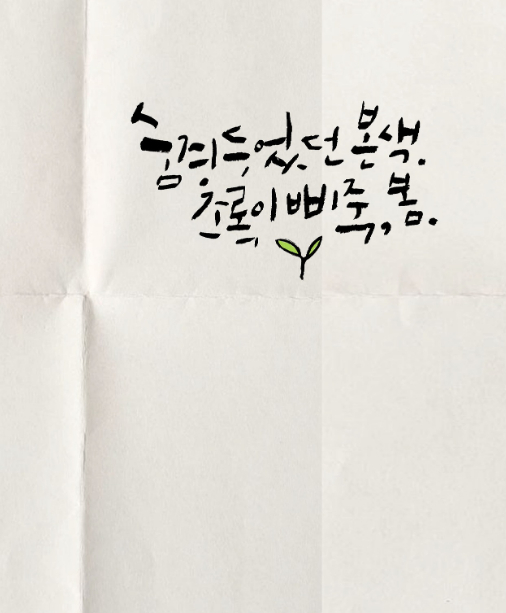 숨겨두었던 본색.
초록이 삐죽, 봄.